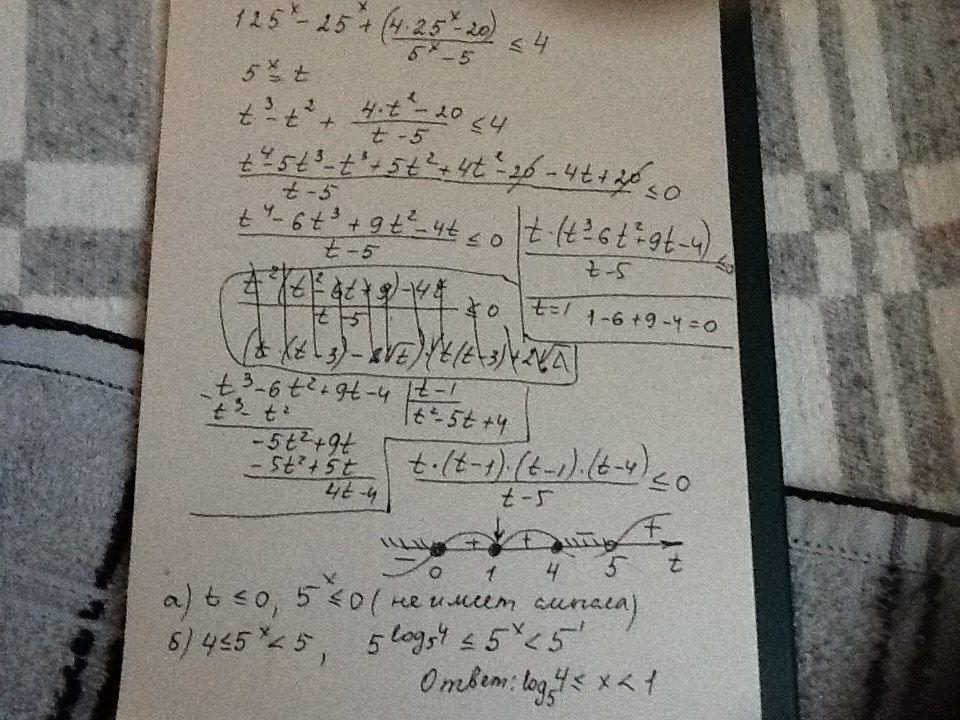 125^x - 25^x + (4·25^x - 20)/(5^x - 5) ≤ 4
5^x = t
t³ - t² + (4·t² - 20)/(t - 5) ≤ 4
(t⁴ - 5t³ - t³ + 5t² + 4t² - 20 - 4t + 20)/(t - 5) ≤ 0
(t⁴ - 6t³ + 9t² - 4t)/(t - 5) ≤ 0
t·(t³ - 6t² + 9t - 4)/(t - 5) ≤ 0
t = 1 1 - 6 + 9 - 4 = 0
t³ - 6t² + 9t - 4 | t - 1
t³ - t² | t² - 5t + 4
-5t² + 9t
-5t² + 5t
4t - 4
t·(t-1)·(t-1)·(t-4)/(t - 5) ≤ 0
- + + - +
0 1 4 5 t
а) t ≤ 0, 5^x ≤ 0 (не имеет смысла)
б) 4 ≤ 5^x < 5, 5^(log₅4) ≤ 5^x < 5¹
Ответ: log₅4 ≤ x < 1